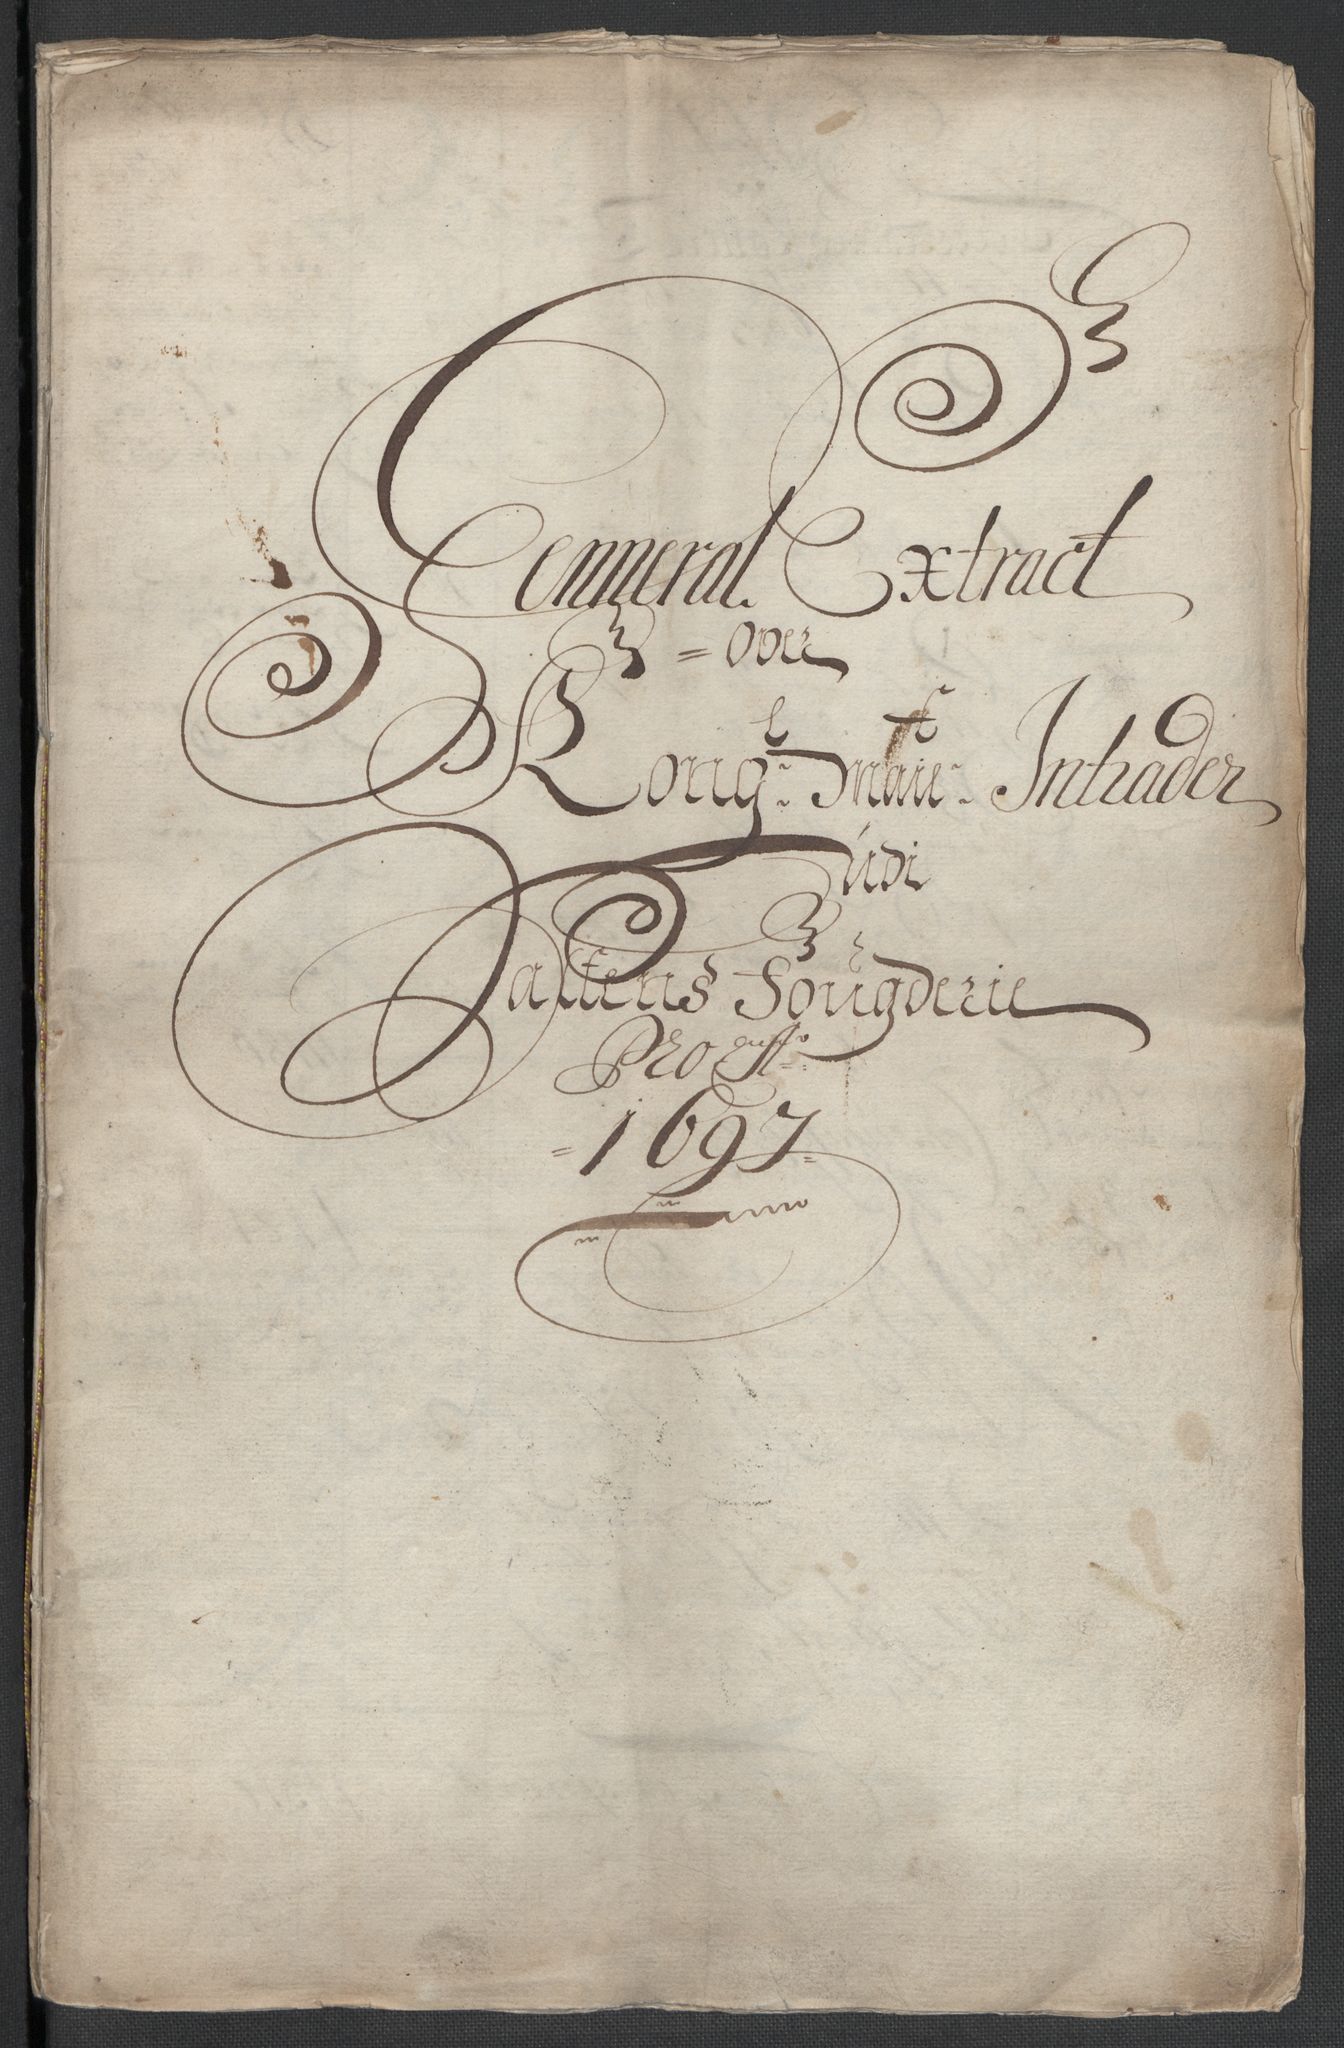 Genneral Extract
= Over
Kong:l Maÿ:t Intrader
udi
Saltens Fougderie
Pro
= 1697 =
Anno